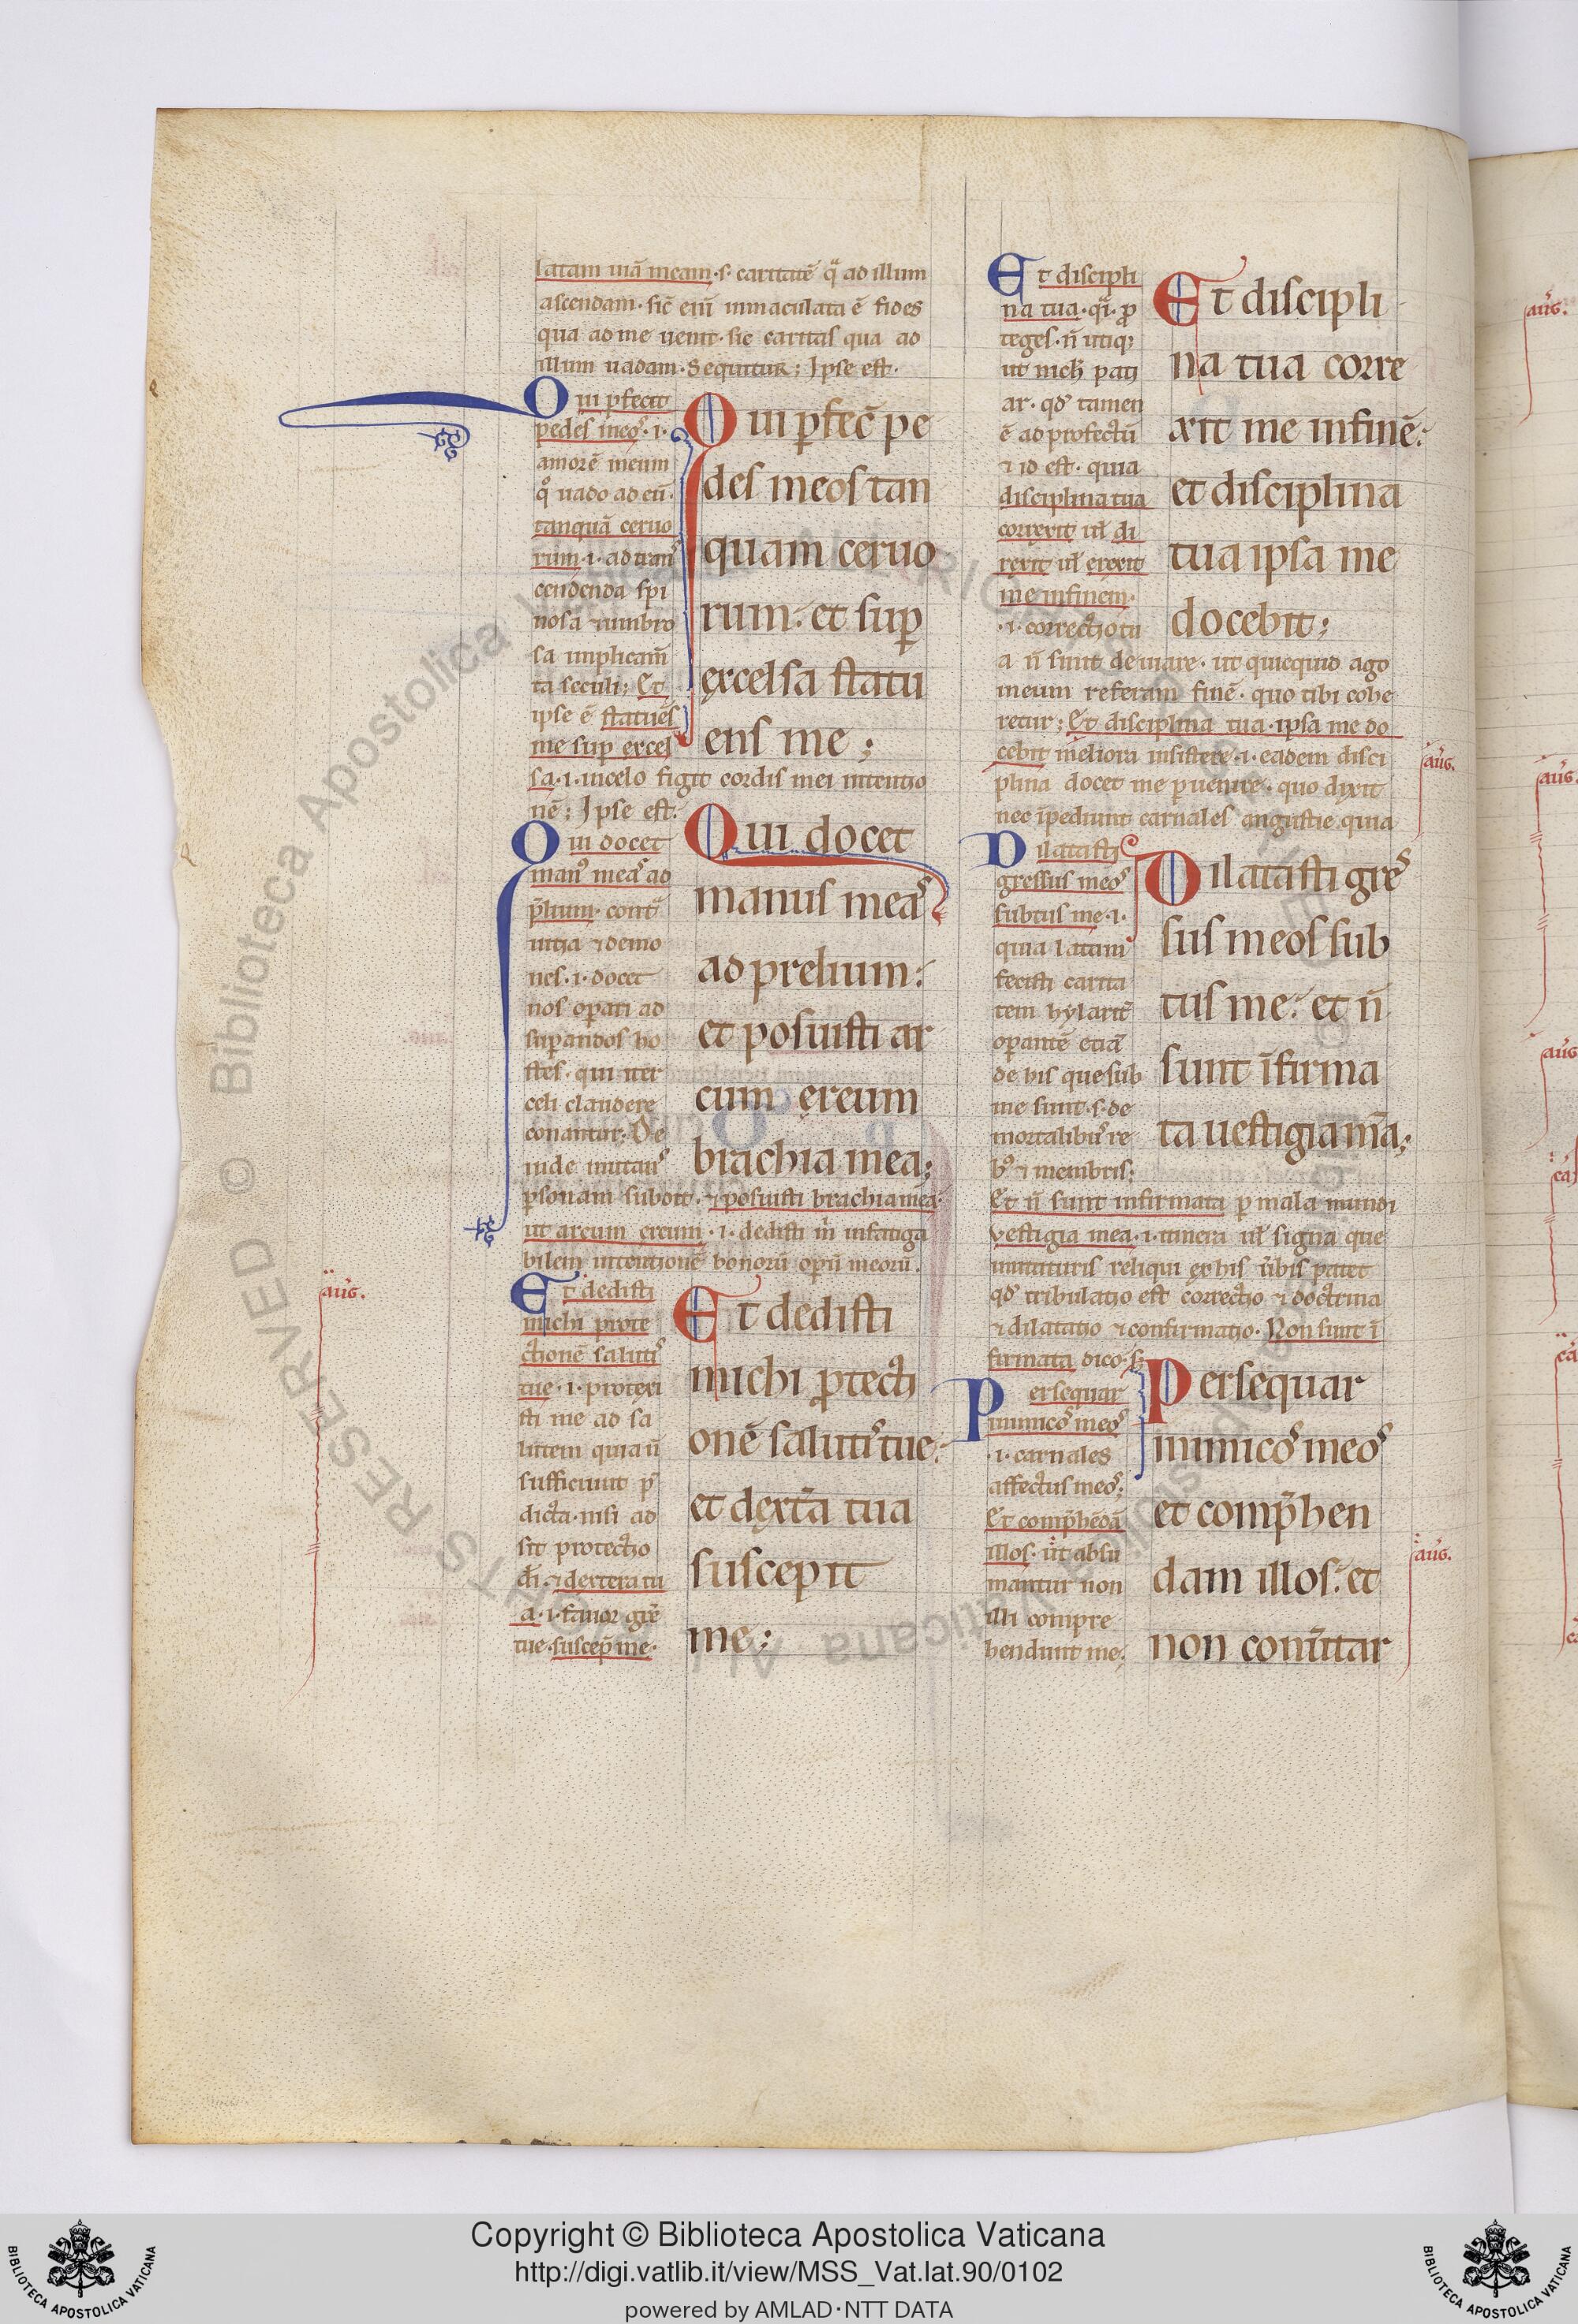 latam uiā meam·s·caritatē q̄ ad illum
ascendam·sic̄ eni̅ inmaculata ē fides
qua ad me uenit·sic caritas qua ad
illum uadam·Sequitur; Ipse est·
Qui pfecit
pedes meos·i·
amorē meum
qͦ uado ad eū·
tanquā ceruo
rum·i·ad trans
cendenda spi
nosa ⁊ umbro
sa implicam̄
ta seculi; Et
ipse ē statuēs
me sup̱ excel
sa·i·in celo figit cordis mei intentio
nē; Ipse est·
Qui ꝑfec̄ pe
des meos tan
quam ceruo
rum: et suꝑ
excelsa statu
ens me;
Qui docet
man᷒ meas ad
p̄lium·cont̄
uitia ⁊ demo
nes·i·docet
nos oꝑari ad
suꝑandos ho
stes·qui iter
celi claudere
conantur·De
inde mutans
ꝑsonam subdit·⁊ posuisti brachia mea·
ut arcum ereum·i·dedisti m̄ infatiga
bilem intentionē bonorū oꝑū meorū·
Qui docet
manus meas
ad prelium:
et posuisti ar
cum ęreum
brachia mea;
aug̅.
Et dedisti
michi prote
ctionē salutis
tue·i·protexi
sti me ad sa
lutem quia n̄
sufficiunt p̄
dicta·nisi ad
sit protectio
di̅·⁊ dextera tu
a·i·fauor grē
tue·suscep̄ me·
Et dedisti
michi ꝓtecti
onē salutis tue:
et dextr̄a tua
suscepit
me;
Et discipli
na tua·q̄·ꝓ
teges·n̄ utiq;
ut nich̄ pati
ar·qd̄ tamen
ē ad profectū
⁊ id est·quia
disciplina tua
correxit ul̄ di
rexit ul̄ erexit
me in finem·
·i·correctio tu
a n̄ sinit deuiare·ut quicquid ago
meum referam finē·quo tibi cohe
retur; Et disciplina tua·ipsa me do
cebit meliora insistere·i·eadem disci
plina docet me ꝑuenire·quo dixit
nec īpediunt carnales angustie quia
Et discipli
na tua corre
xit me in finē:
et disciplina
tua ipsa me
docebit;
aug̅.
Dilatasti
gressus meos
subtus me·i·
quia latam
fecisti carita
tem hylarit̄
oꝑantē etiā
de his que sub
me sunt·s·de
mortalibus re
bꝰ ⁊ membris;
Et n̄ sunt infirmata ꝑ mala mundi
uestigia mea·i·itinera ul̄ signa que
imitaturis reliqui ex his ūbis patet
qd̄ tribulatio est correctio ⁊ doctrina
⁊ dilatatio ⁊ confirmatio·Non sunt ī
firmata dico·s;
Dilatasti gres
sus meos sub
tus me: et n̄
sunt īfirma
ta uestigia m̄a;
Persequar
inimicos meos
·i·carnales
affectus meos;
Et comp̄hēdā
illos·ūt absu
mantur non
illi compre
hendunt me;
Persequar
inimicos meos
et comp̄hen
dam illos: et
non conūtar
aug̅.
aug̅.
aug̅.
aug̅
Copyright © Biblioteca Apostolica Vaticana
http://digi.vatlib.it/view/MSS_Vat.lat.90/0102
powered by AMLAD·NTT DATA
BIBLIOTECA APOSTOLICA VATICANA
BIBLIOTECA APOSTOLICA VATICANA